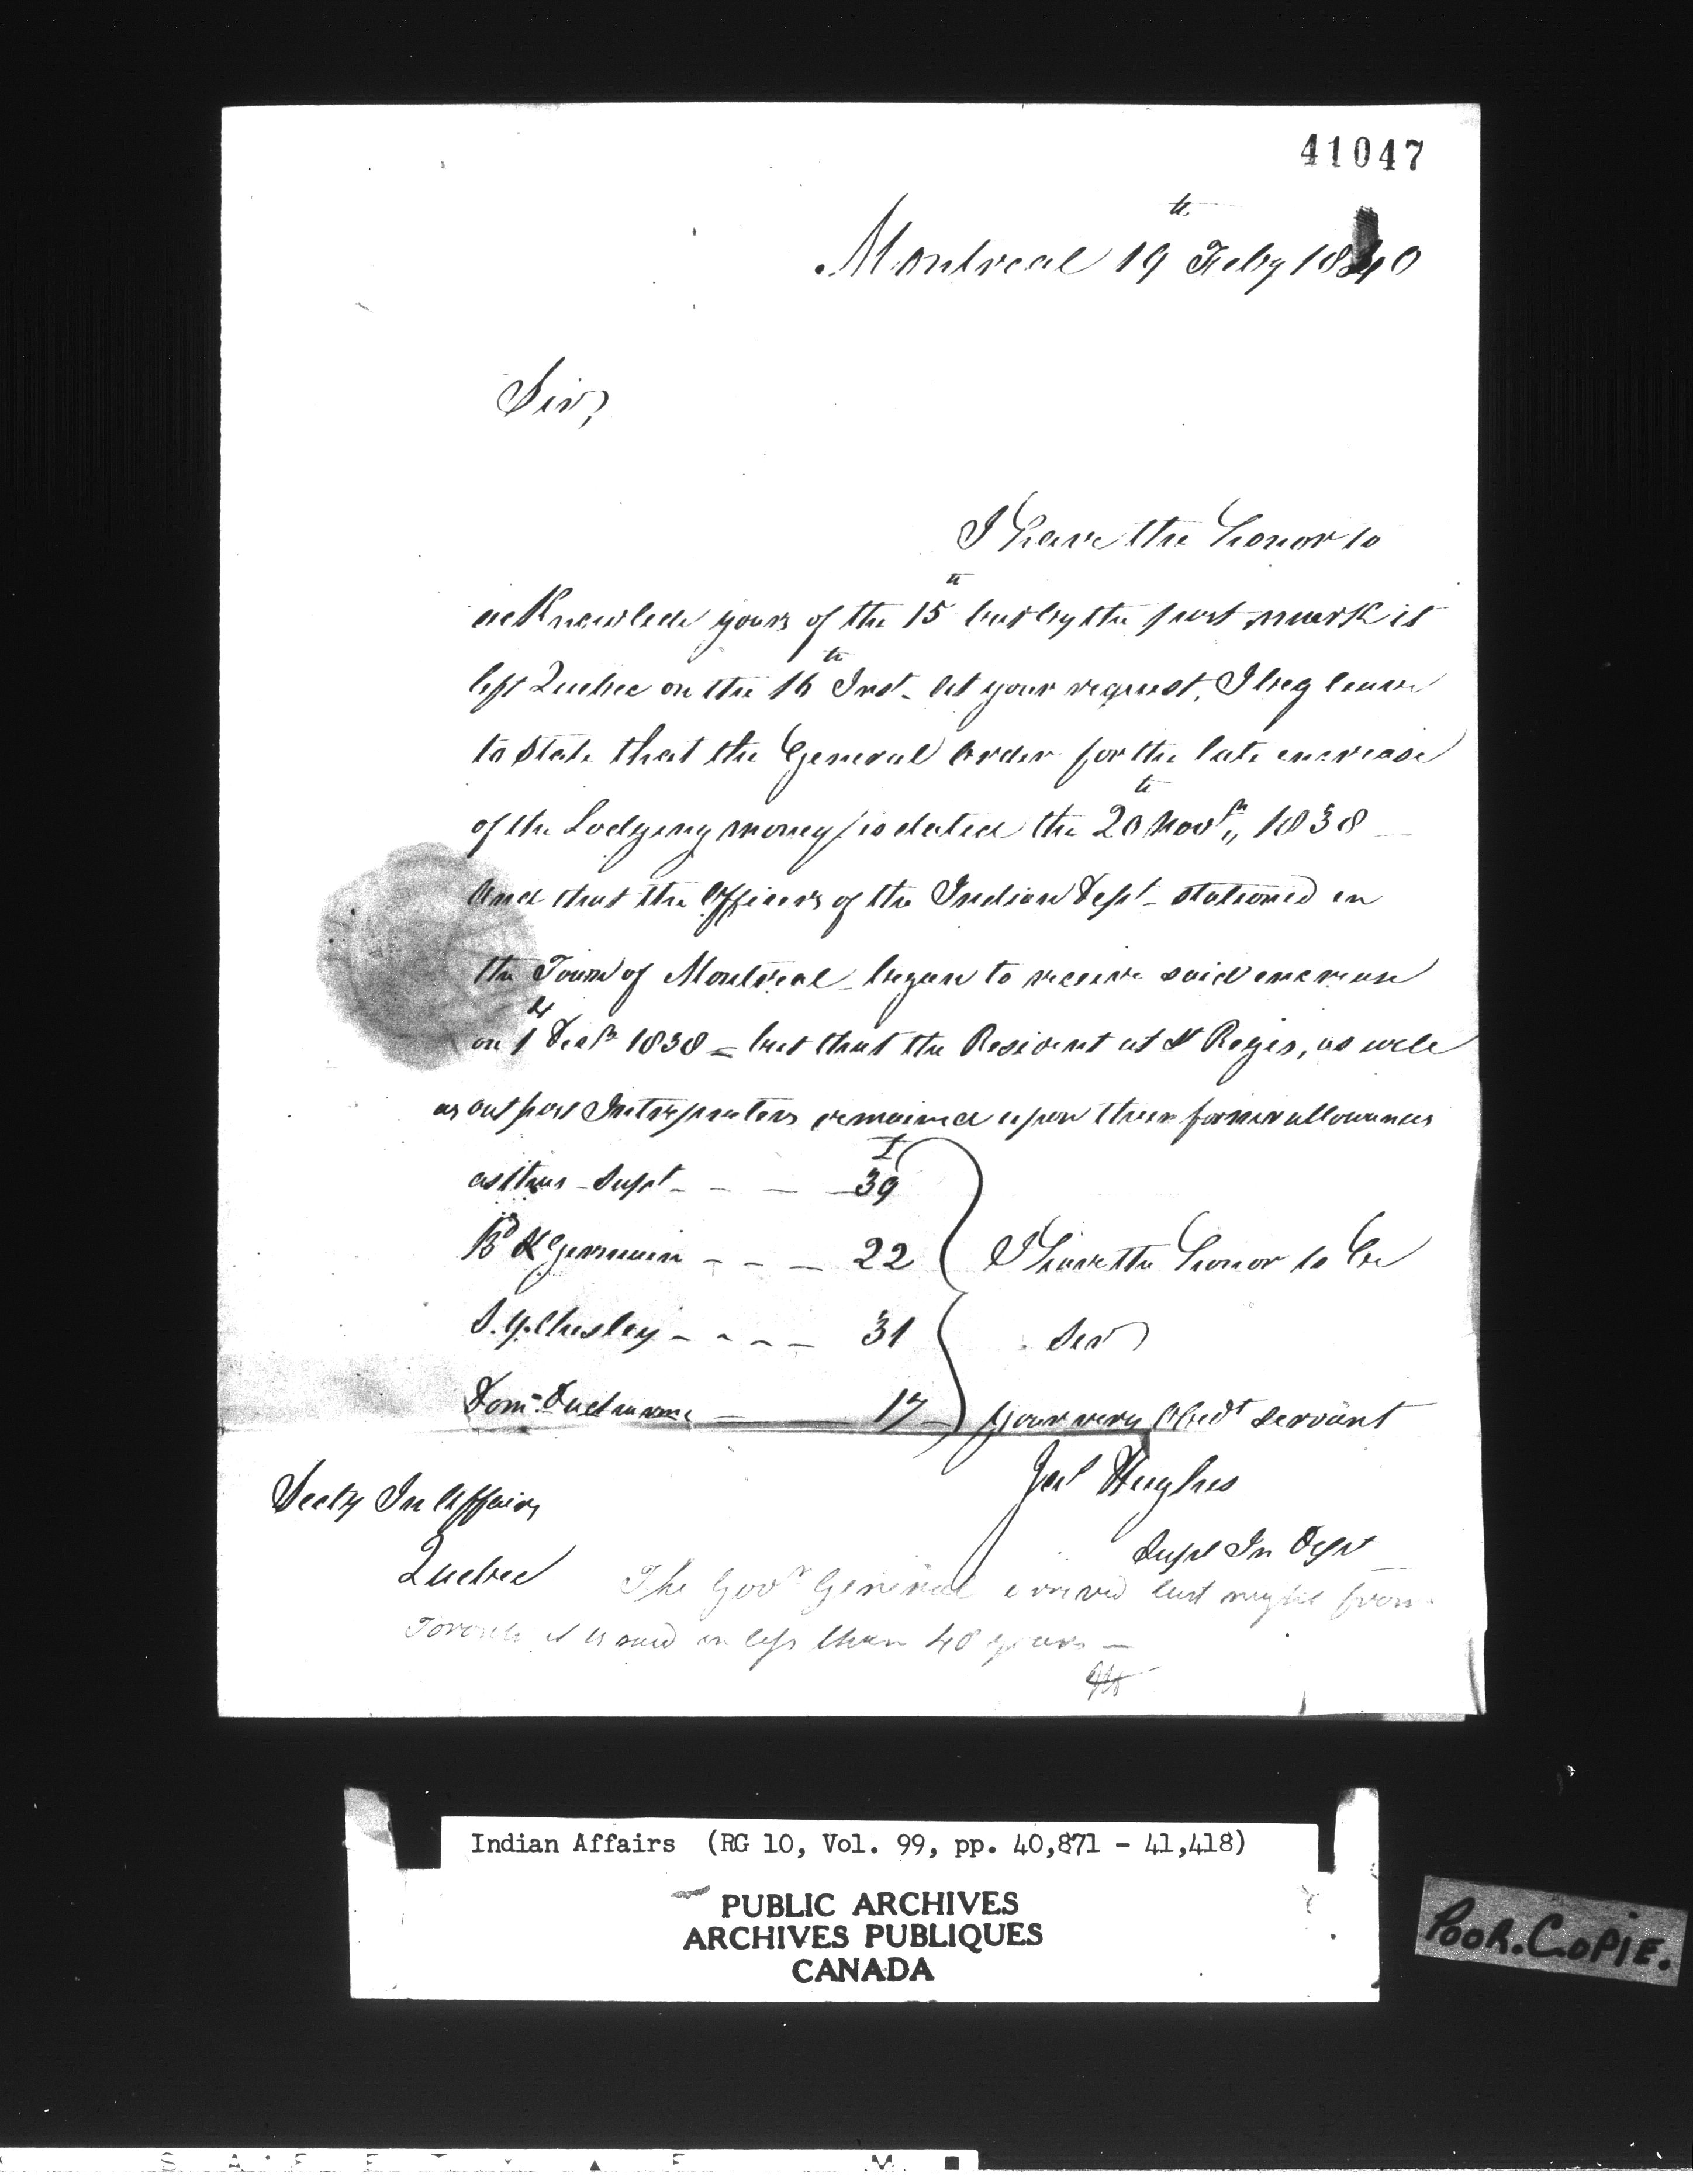 41047
Montreal 19th Feby 1840
Sir,
I have the honor to
acknowlede yours of the 15th but by the post mark it
left Quebec on the 16th Inst. at your request, I beg leave
to state that the General Order for the late increase
of the Lodging money is dated the 20th Novr,, 1838
And that the Officers of the Indian Dept stationed in
the Town of Montreal began to receive said increase
on 1st Decr 1838 = but that the Resident at St Regis, as well
as out post Interpreters remained upon their former allowances
as thus - Supt - - - - 39
Bd St Germain - - - 22 I have the honor to be
S. Y. Chesley - - - - 31 Sir
Dom: Ducharme 17 your very Obedt Servant
Jas Hughes
Supt In Dept
Secty In Affairs
Quebec
The Govr General arrived last night from
Toronto it is said in less than 40
Indian Affairs (RG 10, Vol. 99, pp. 40,871 - 41,418)
PUBLIC ARCHIVES
ARCHIVES PUBLIQUES
CANADA
POOR.COPIE.